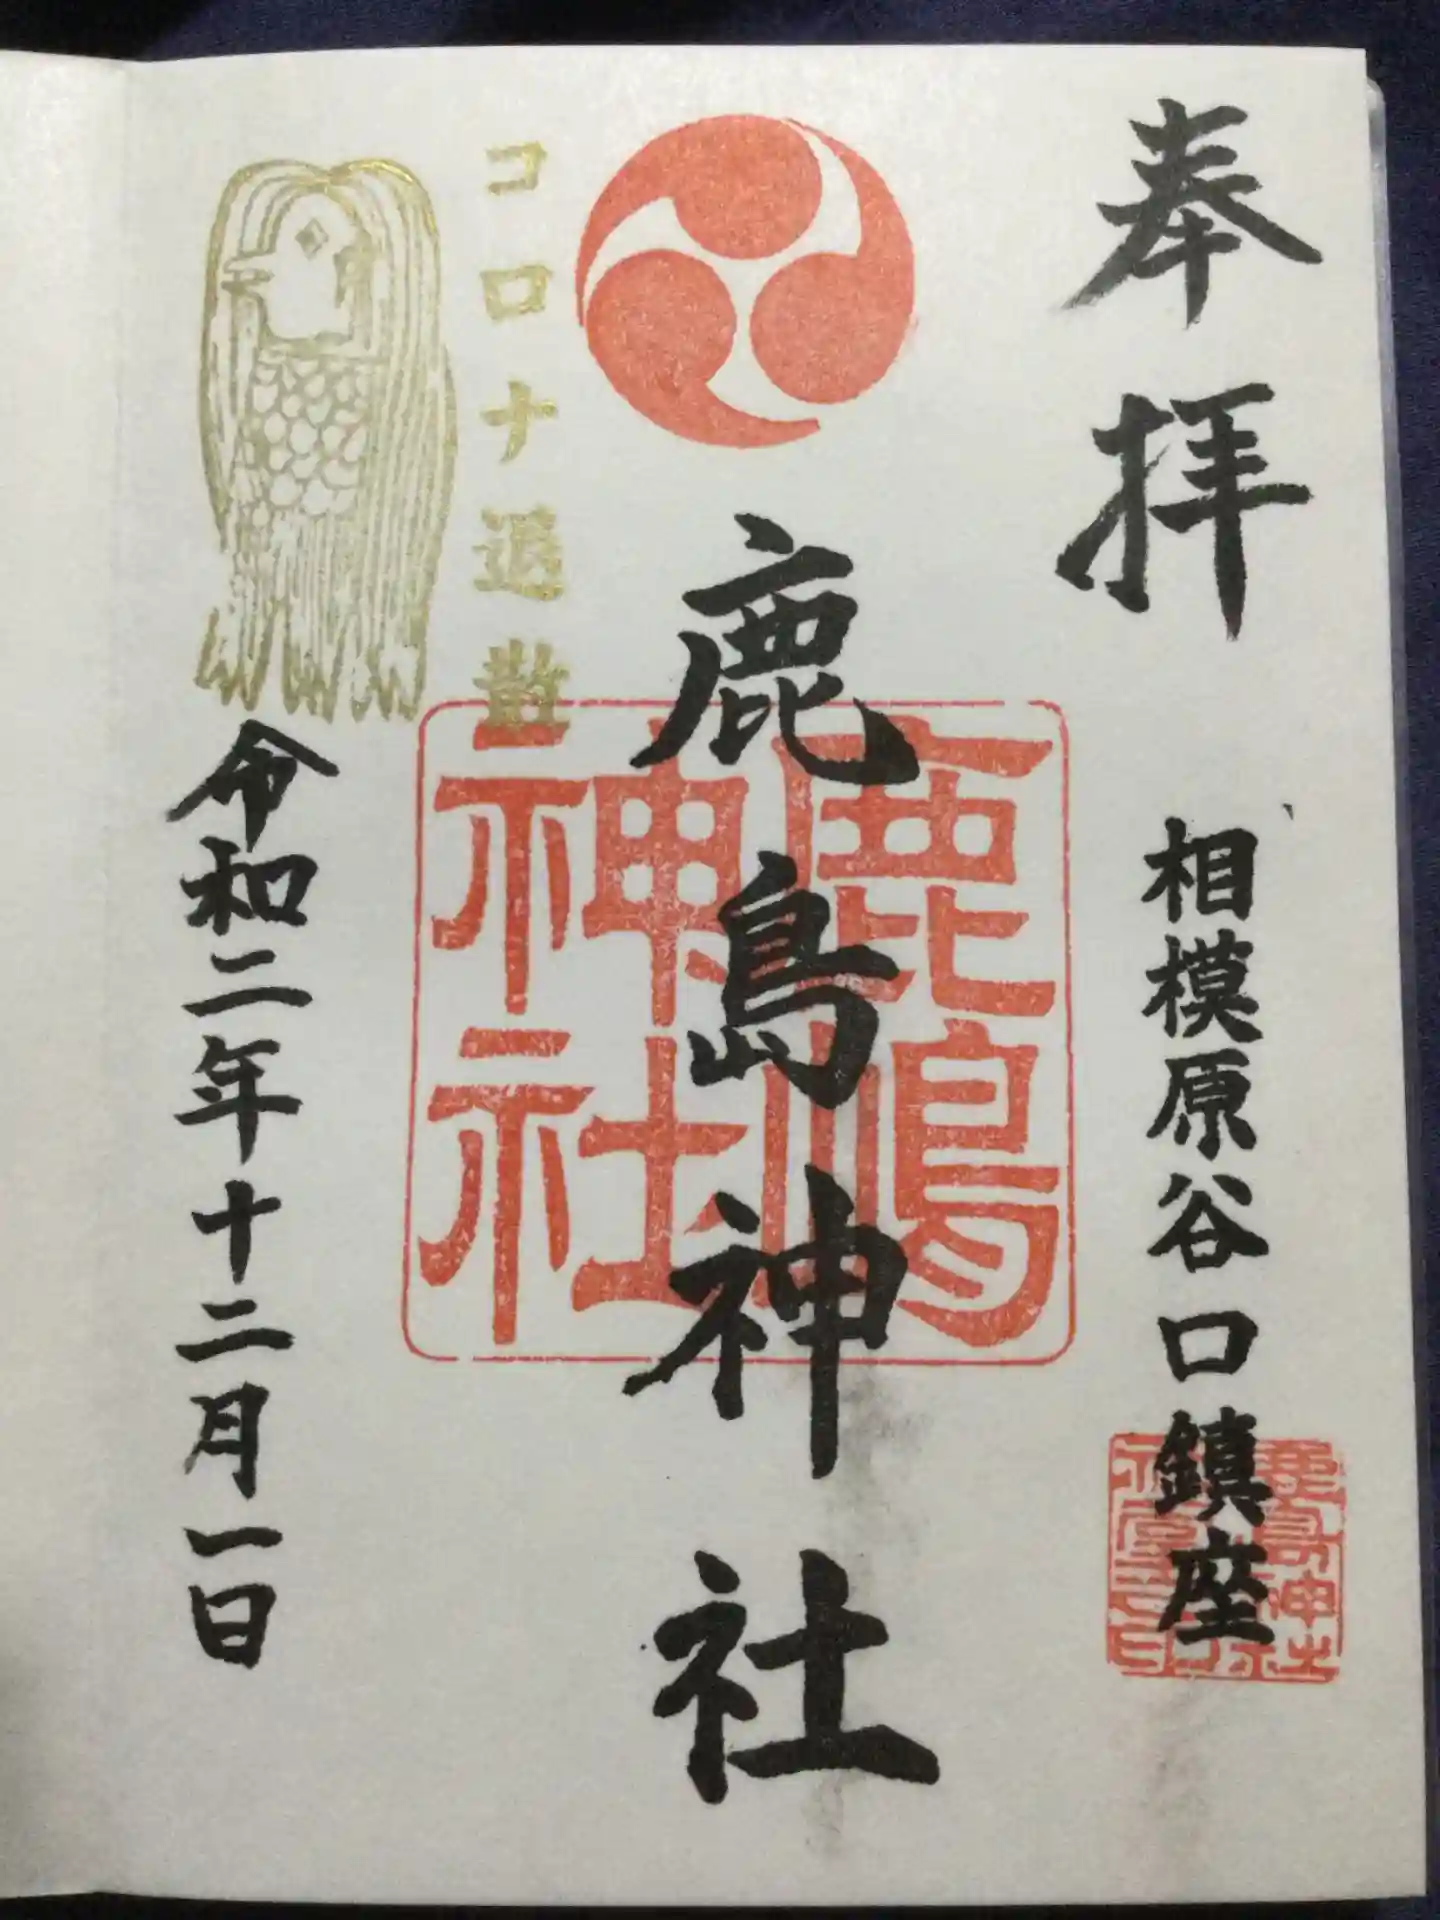 奉拝
相模原谷口鎮座
鹿島神社
鹿嶋神社
コロナ退散
令和二年十二月一日